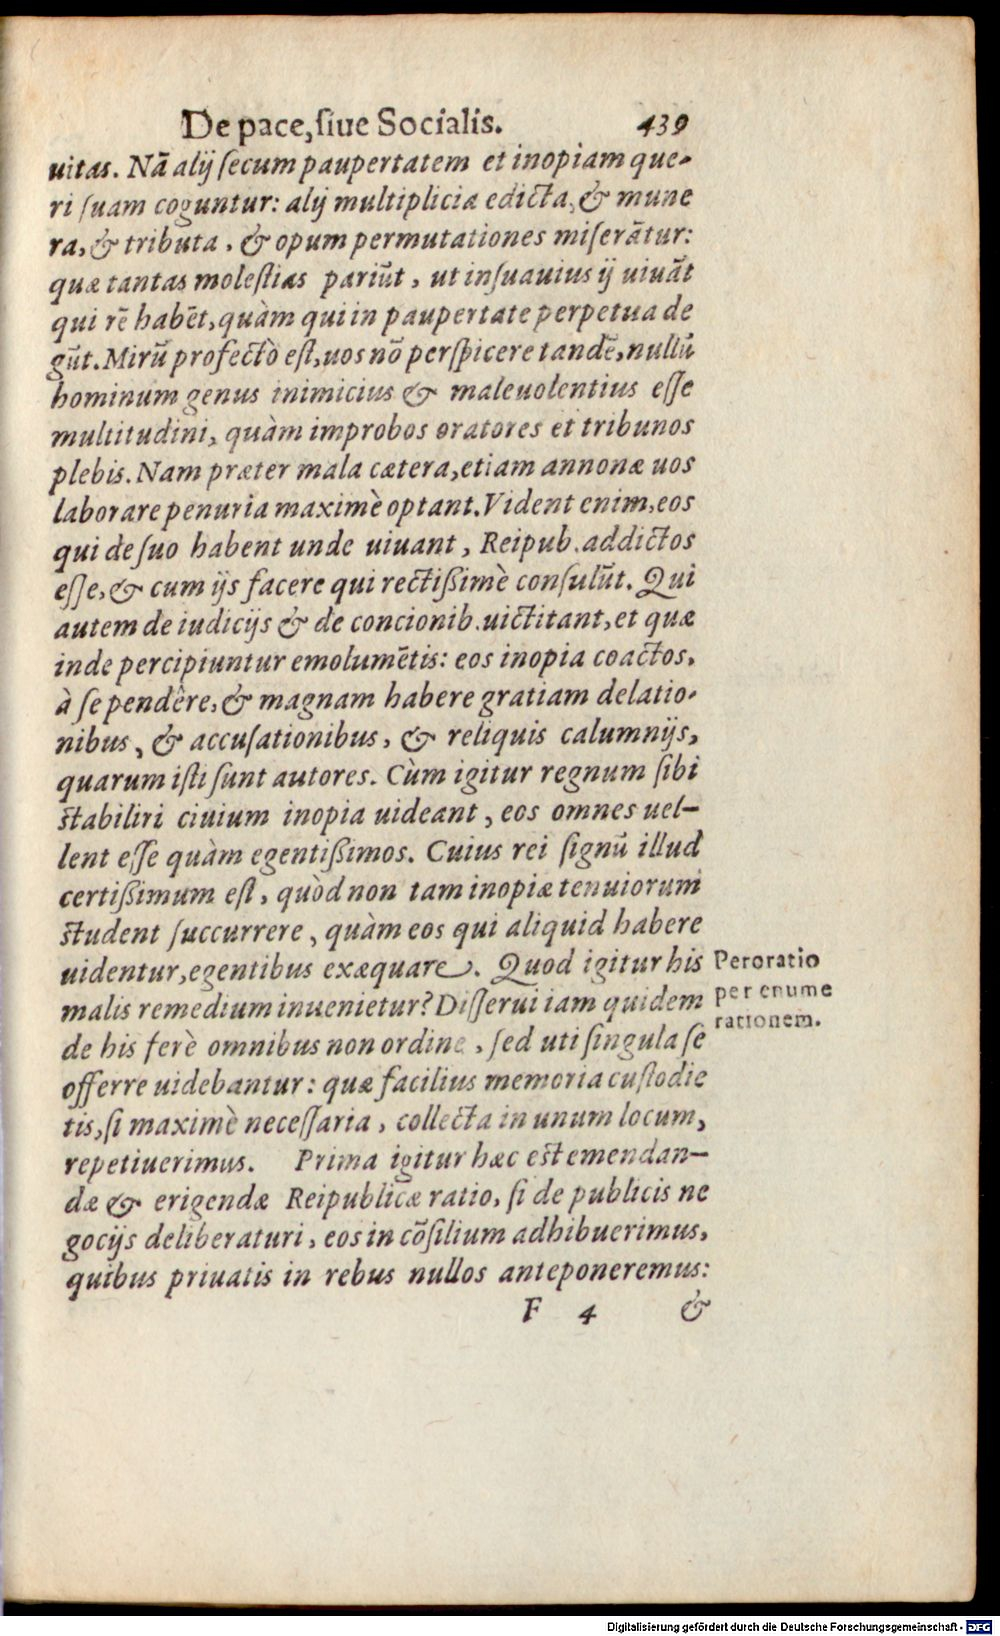 De pace, ſiue Socialis. 439
uitas. Nā alij ſecum paupertatem et inopiam que-
ri ſuam coguntur: alij multiplicia edicta, & mune
ra, & tributa, & opum permutationes miſerātur:
quæ tantas moleſtias pariūt, ut inſuauius ij uiuāt
qui rē habēt, quàm qui in paupertate perpetua de
gūt. Mirū profectò eſt, uos nō perſpicere tandē, nullū
hominum genus inimicius & maleuolentius eſſe
multitudini, quàm improbos oratores et tribunos
plebis. Nam præter mala cætera, etiam annonæ uos
laborare penuria maximè optant. Vident enim, eos
qui de ſuo habent unde uiuant, Reipub. addictos
eſſe, & cum ijs facere qui rectißimè conſulūt. Qui
autem de iudicijs & de concionib. uictitant, et quæ
inde percipiuntur emolumētis: eos inopia coactos,
à ſe pendêre, & magnam habere gratiam delatio-
nibus, & accuſationibus, & reliquis calumnijs,
quarum iſti ſunt autores. Cùm igitur regnum ſibi
ſtabiliri ciuium inopia uideant, eos omnes uel-
lent eſſe quàm egentißimos. Cuius rei ſignū illud
certißimum eſt, quòd non tam inopiæ tenuiorum
ſtudent ſuccurrere, quàm eos qui aliquid habere
uidentur, egentibus exæquare. Quod igitur his
malis remedium inuenietur? Diſſerui iam quidem
de his ferè omnibus non ordine, ſed uti ſingula ſe
offerre uidebantur: quæ facilius memoria cuſtodie
tis, ſi maximè neceſſaria, collecta in unum locum,
repetiuerimus. Prima igitur hæc est emendan-
dæ & erigendæ Reipublicæ ratio, ſi de publicis ne
gocijs deliberaturi, eos in cōſilium adhibuerimus,
quibus priuatis in rebus nullos anteponeremus:
F 4 &
Peroratio
per enume
rationem.
Digitalisierung gefördert durch die Deutsche Forschungsgemeinschaft - DFG